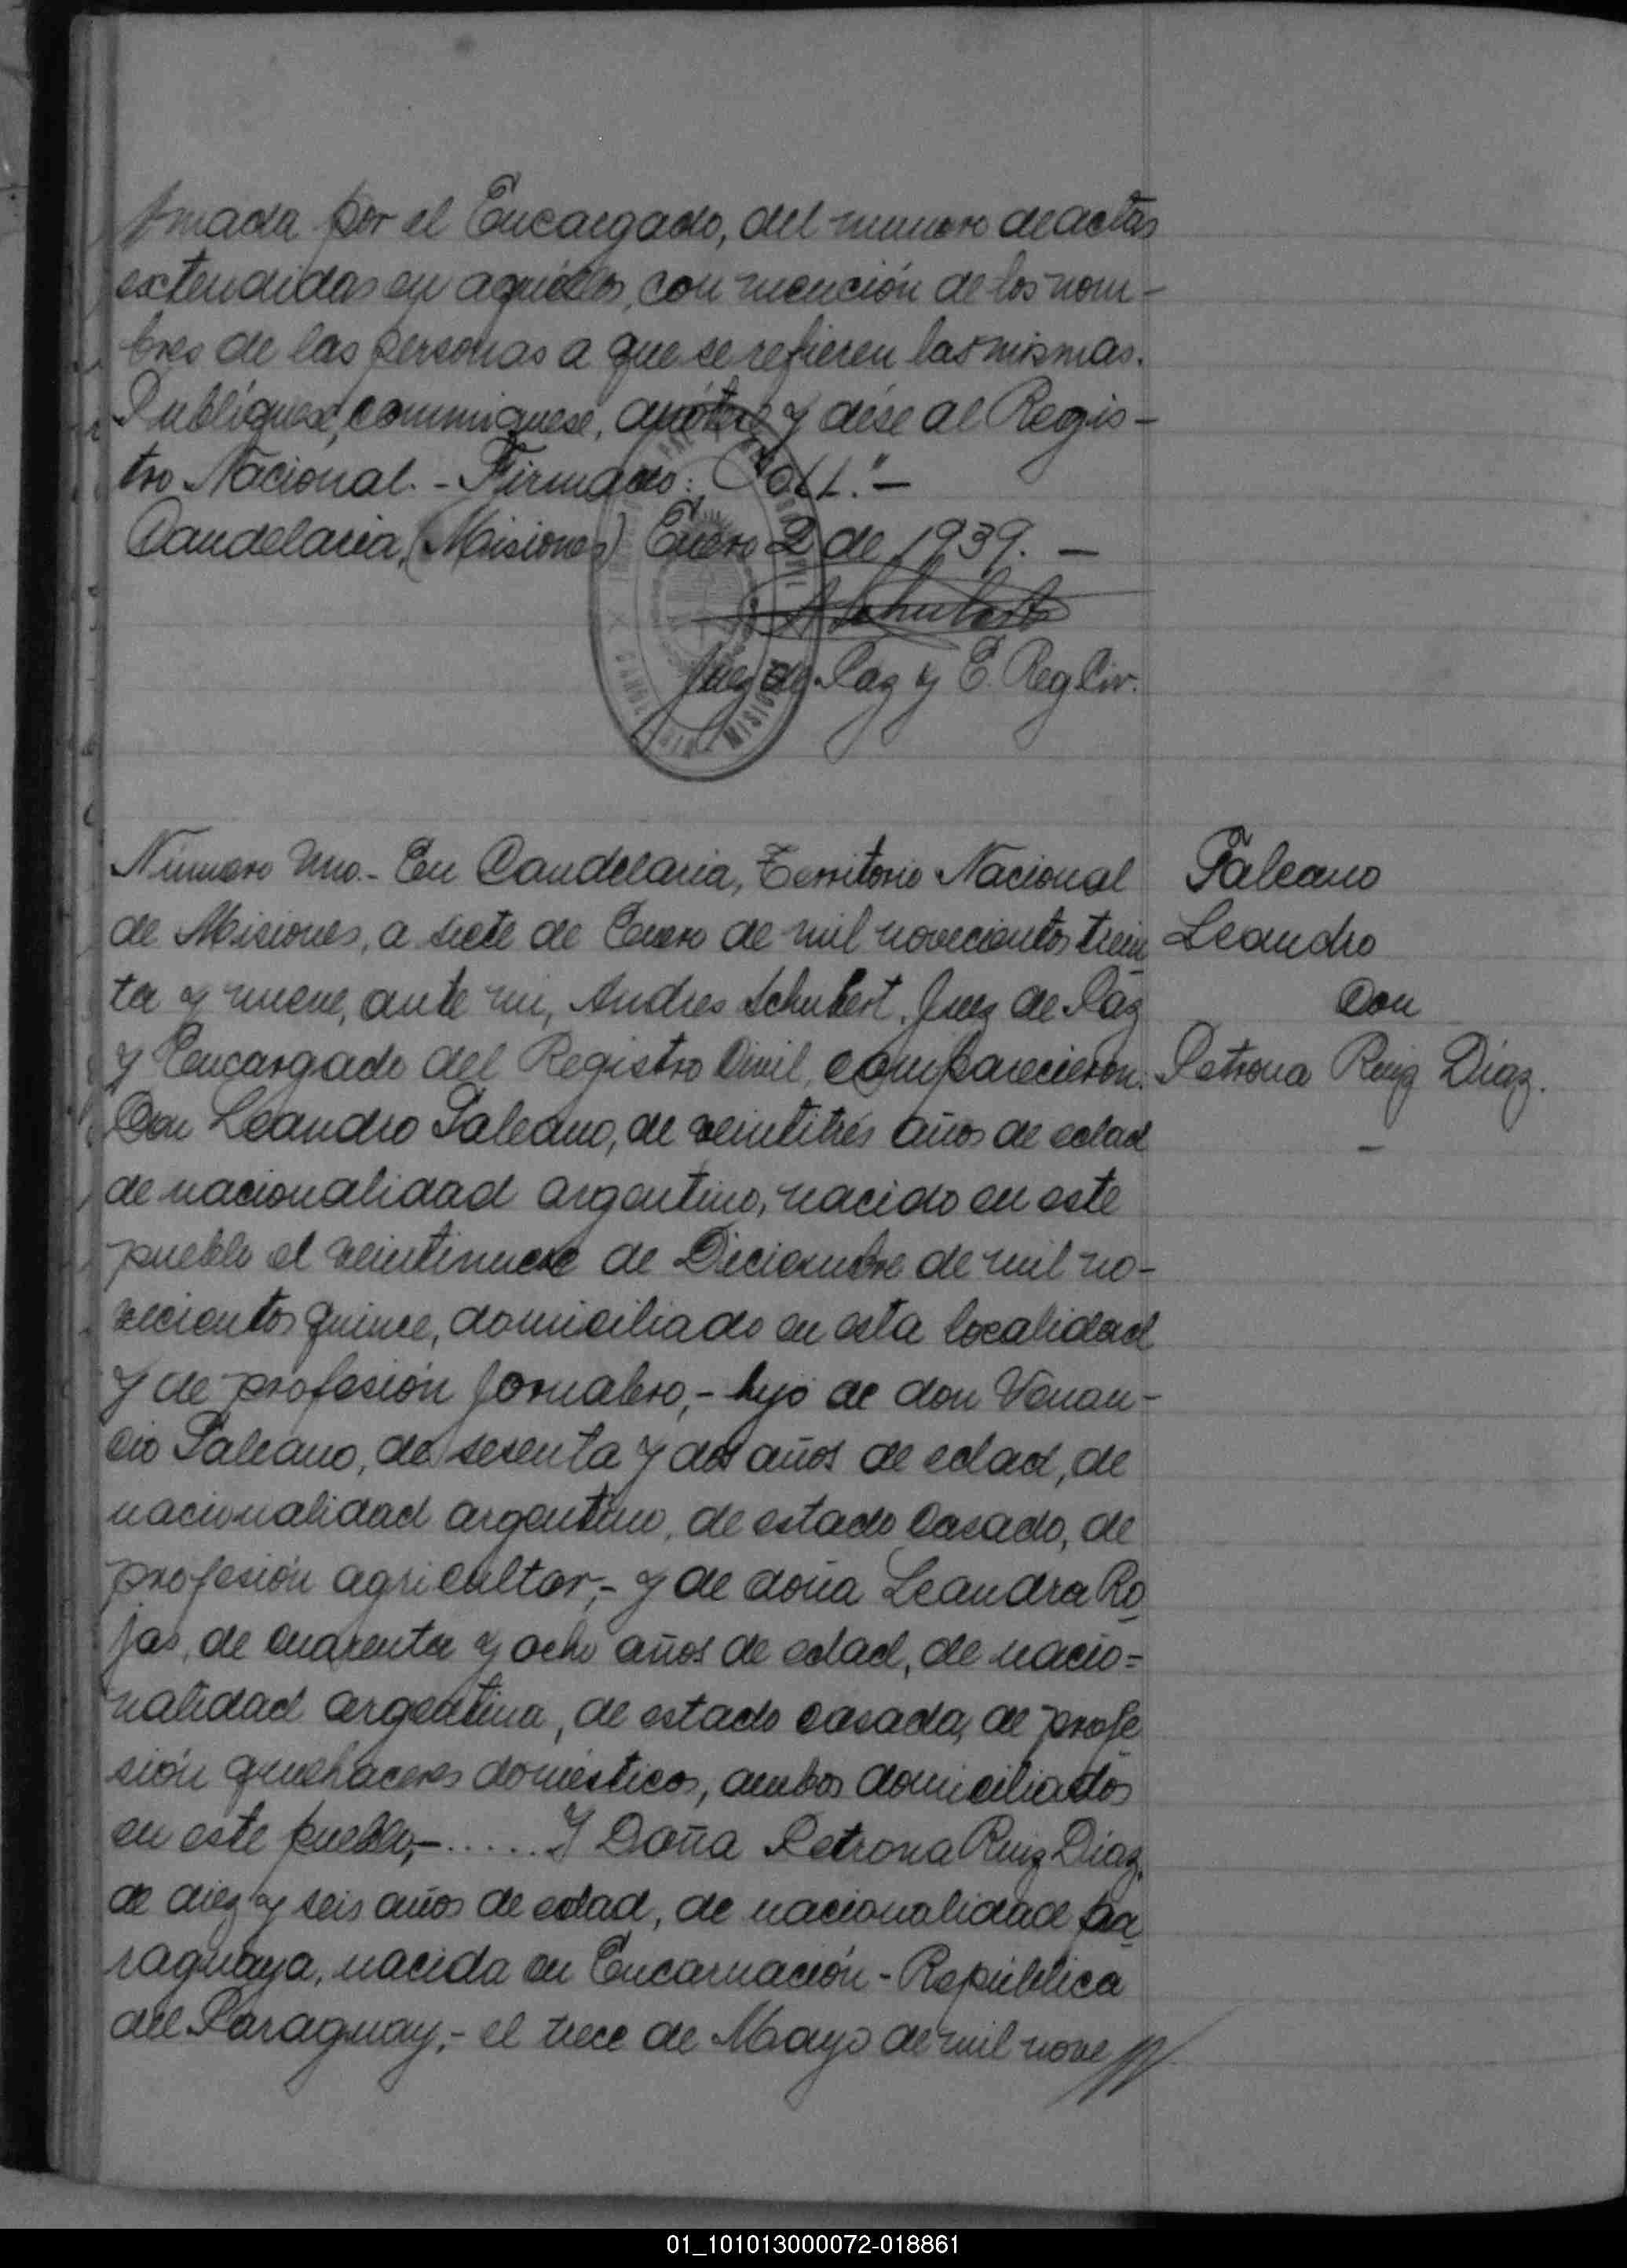 firmada por el Encargado, del numero de actas
extendidas en aquéllos, con mención de los nom-
bres de las personas a que se refieren las mismas.
Publíquese, comuníquese, anótese y dése al Regis-
tro Nacional. - Firmado: Coll." -
Candelaria, (Misiones) Enero 2 de 1939. -
A Schubert
Juez de Paz y E. Reg Civ.
MISIONES
Número Uno.- En Candelaria, Territorio Nacional
de Misiones, a siete de Enero de mil novecientos trein
ta y nueve, ante mi, Andres Schubert, Juez de Paz
y Encargado del Registro Civil, comparecieron:
Don Leandro Paleano, de veintitrés años de edad
de nacionalidad argentino, nacido en este
pueblo el veintinueve de Diciembre de mil no-
vecientos quince, domiciliado en esta localidad
y de profesión Jornalero,- hijo de don Venan-
cio Paleano, de sesenta y dos años de edad, de
nacionalidad argentino, de estado casado, de
profesión agricultor,- y de doña Leandra Ro
jas, de cuarenta y ocho años de edad, de nacio=
nalidad argentina, de estado casada, de profe
sión quehaceres domésticos, ambos domiciliados
en este pueblo,- ..... Y Doña Petrona Ruiz Díaz,
de diez y seis años de edad, de nacionalidad pa
raguaya, nacida en Encarnación - República
del Paraguay,- el trece de Mayo de mil nove //
Paleano
Leandro
Con
Petrona Ruiz Díaz.
-
01_101013000072-018861